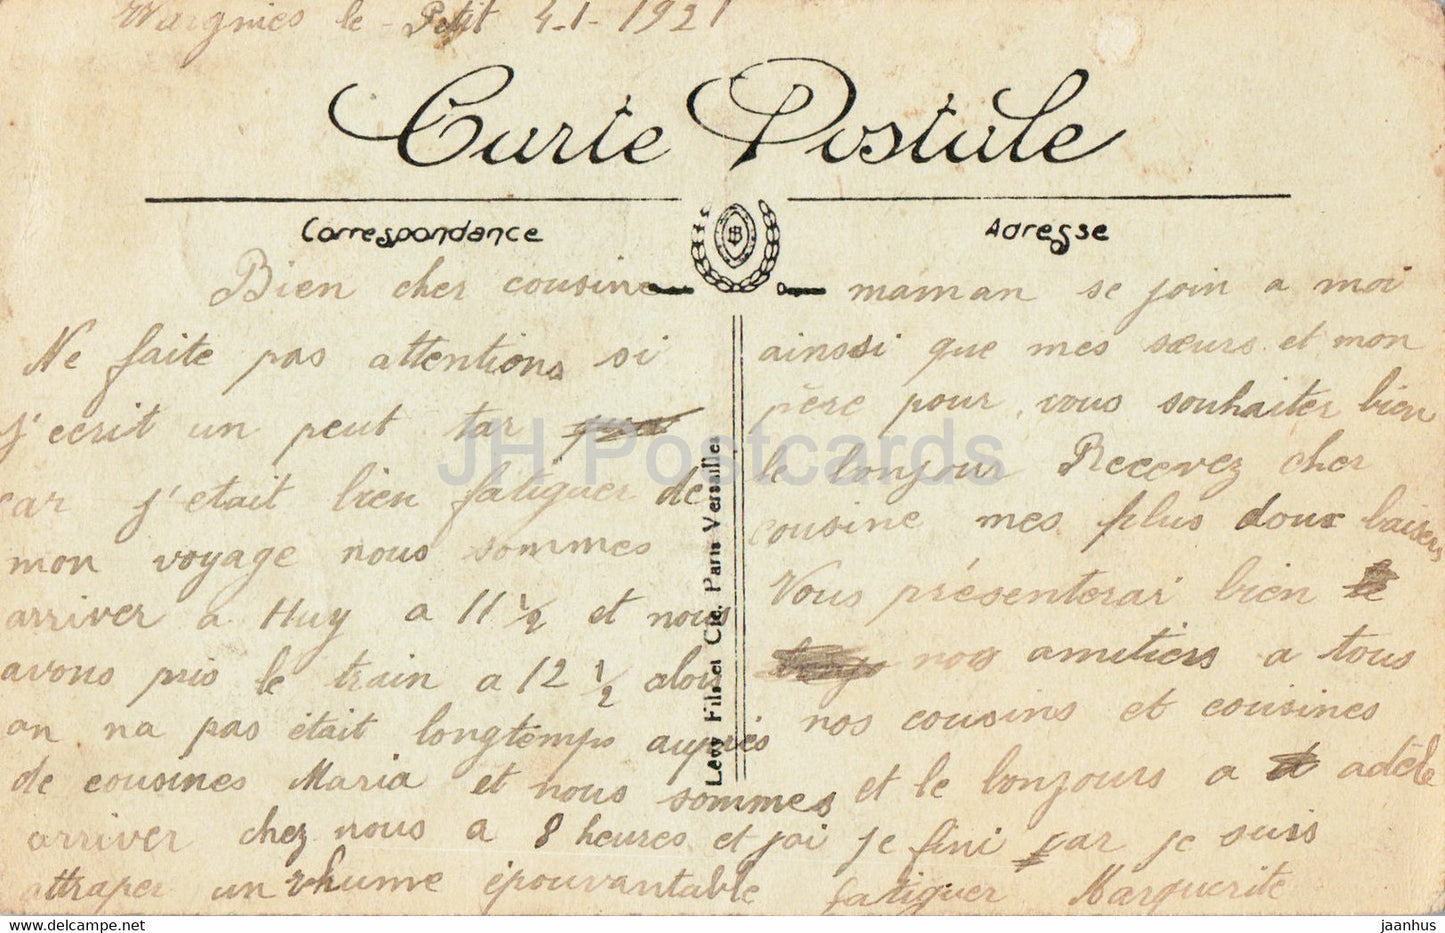 Wargnies le-Petit 4-1-1921
Carte Postale
Correspondance
Adresse
Bien cher cousine
Ne faite pas attentions si
j'ecrit un peut tar
car j'etait bien fatiguer de
mon voyage nous sommes
arriver a Huy a 11 1/2 et nous
avons pris le train a 12 1/2 alors
an na pas était longtemps auprès
de cousines Maria et nous sommes
arriver chez nous a 8 heures et jai
attraper un rhume épouvantable
maman se join a moi
ainssi que mes sœurs et mon
père pour vous souhaiter bien
le bonjour Recevez cher
cousine mes plus doux baisers
Vous présenterai bien
nos amitiers a tous
nos cousins et cousines
et le bonjours a adèle
je fini car je suis
fatiguer Marguerite
Levy Fils et Cie, Paris Versailles
JH Postcards
hippostcard.com/store/jaanhus
jaanhus